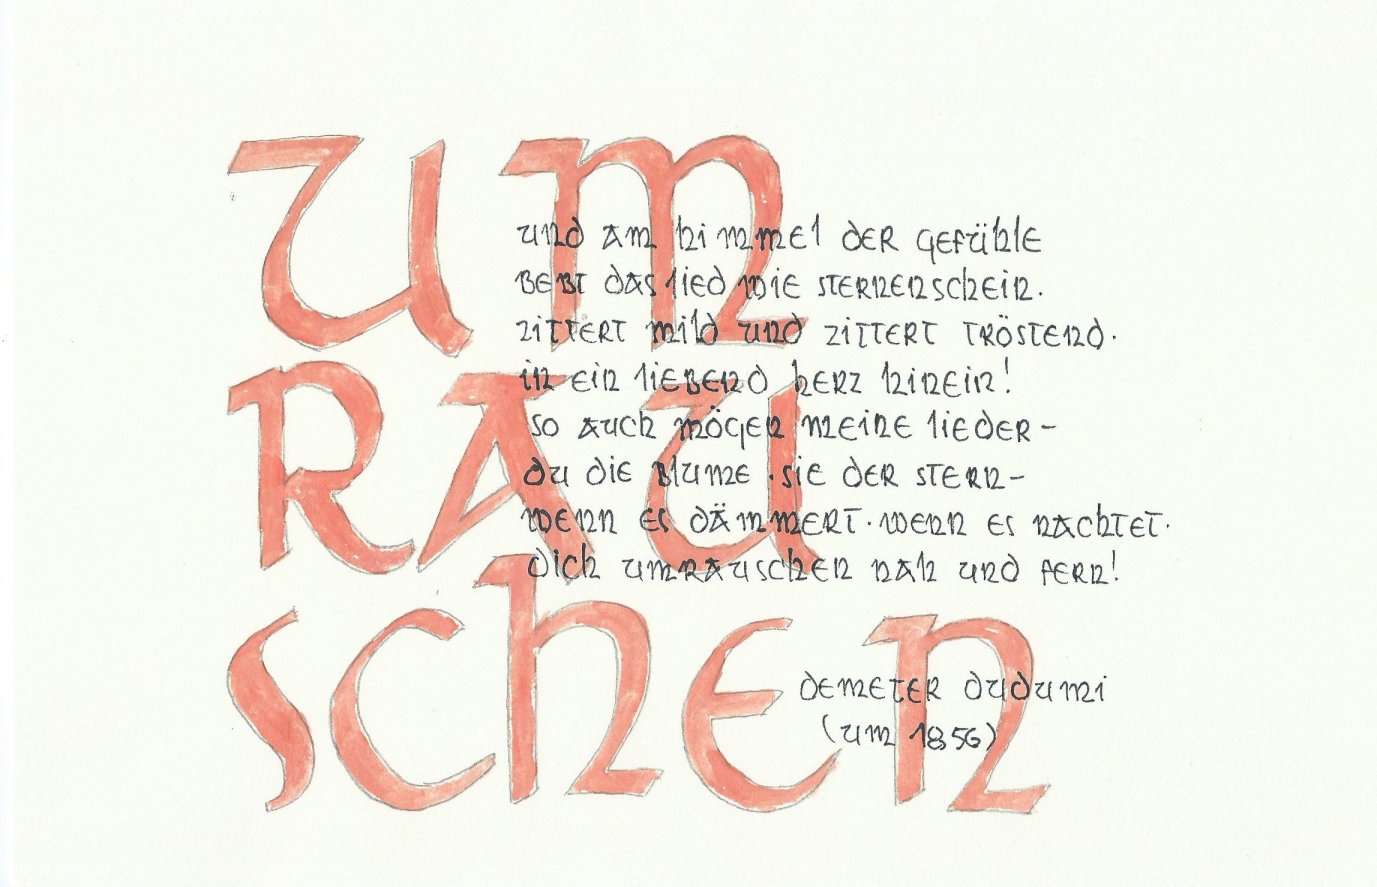 UM
RAU
SCHEN
und am himmel der gefühle
bebt das lied wie sternenschein.
zittert mild und zittert tröstend.
in ein liebend herz hinein!
so auch mögen meine lieder-
du die blume.sie der stern-
wenn es dämmert.wenn es nachtet.
dich umrauschen nah und fern!
demeter dudumi
(um 1856)